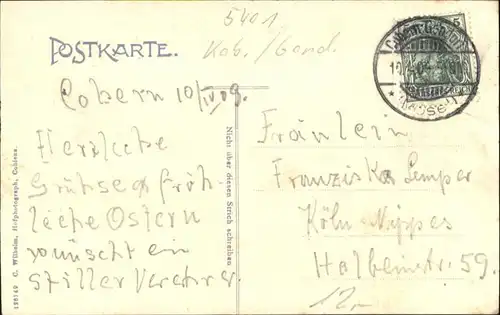 5401
POSTKARTE.
Kob./Gond.
Cobern 10/IV 09.
Herzliche
Grüsse & fröh-
liche Ostern
wünscht ein
stiller Verehrer.
Nicht über diesen Strich schreiben
158149 C. Wilhelm, Hofphotograph, Coblenz.
5
Fräulein
Franziska Semper
Köln-Nippes
Holbeinstr. 59.
12,-